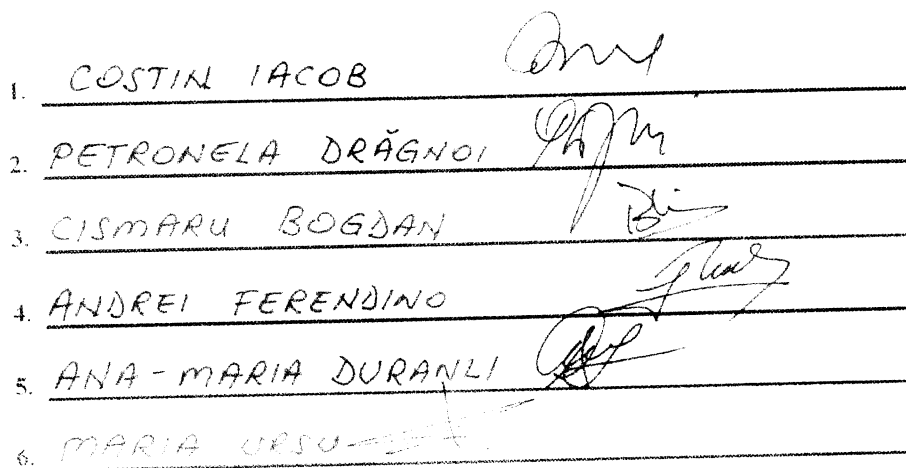 1. COSTIN IACOB
2. PETRONELA DRĂGNOI
3. CISMARU BOGDAN
4. ANDREI FERENDINO
5. ANA-MARIA DURANLI
6. MARIA URSU